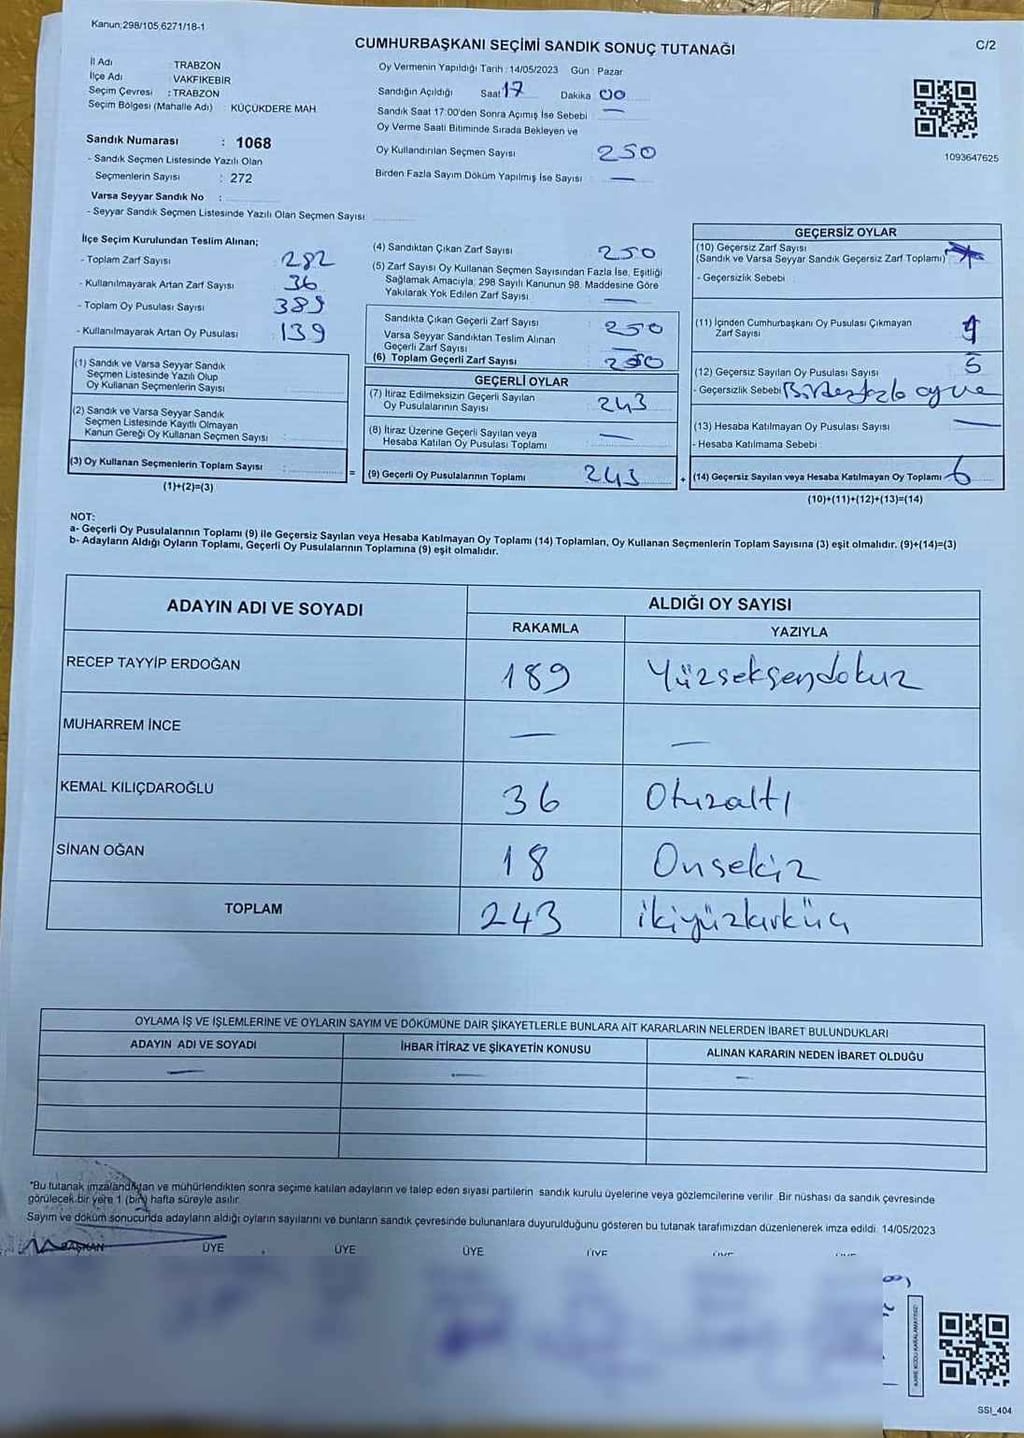 Kanun;298/105,6271/18-1
CUMHURBAŞKANI SEÇİMİ SANDIK SONUÇ TUTANAĞI
C/2
İl Adı : TRABZON
İlçe Adı : VAKFIKEBİR
Seçim Çevresi : TRABZON
Seçim Bölgesi (Mahalle Adı) KÜÇÜKDERE MAH.
Sandık Numarası : 1068
- Sandık Seçmen Listesinde Yazılı Olan
Seçmenlerin Sayısı : 272
Varsa Seyyar Sandık No :
- Seyyar Sandık Seçmen Listesinde Yazılı Olan Seçmen Sayısı
Oy Vermenin Yapıldığı Tarih : 14/05/2023 Gün : Pazar
Sandığın Açıldığı Saat 17 Dakika 00
Sandık Saat 17:00'den Sonra Açımış İse Sebebi —
Oy Verme Saati Bitiminde Sırada Bekleyen ve
Oy Kullandırılan Seçmen Sayısı 250
Birden Fazla Sayım Döküm Yapılmış İse Sayısı —
1093647625
İlçe Seçim Kurulundan Teslim Alınan;
- Toplam Zarf Sayısı 282
- Kullanılmayarak Artan Zarf Sayısı 36
- Toplam Oy Pusulası Sayısı 389
- Kullanılmayarak Artan Oy Pusulası 139
(1) Sandık ve Varsa Seyyar Sandık
Seçmen Listesinde Yazılı Olup
Oy Kullanan Seçmenlerin Sayısı
(2) Sandık ve Varsa Seyyar Sandık
Seçmen Listesinde Kayıtlı Olmayan
Kanun Gereği Oy Kullanan Seçmen Sayısı :
(3) Oy Kullanan Seçmenlerin Toplam Sayısı :
(1)+(2)=(3)
(4) Sandıktan Çıkan Zarf Sayısı 250
(5) Zarf Sayısı Oy Kullanan Seçmen Sayısından Fazla İse, Eşitliği
Sağlamak Amacıyla; 298 Sayılı Kanunun 98. Maddesine Göre
Yakılarak Yok Edilen Zarf Sayısı —
Sandıkta Çıkan Geçerli Zarf Sayısı 250
Varsa Seyyar Sandıktan Teslim Alınan
Geçerli Zarf Sayısı —
(6) Toplam Geçerli Zarf Sayısı 250
GEÇERLİ OYLAR
(7) İtiraz Edilmeksizin Geçerli Sayılan
Oy Pusulalarının Sayısı 243
(8) İtiraz Üzerine Geçerli Sayılan veya
Hesaba Katılan Oy Pusulası Toplamı —
= (9) Geçerli Oy Pusulalarının Toplamı 243
GEÇERSİZ OYLAR
(10) Geçersiz Zarf Sayısı
(Sandık ve Varsa Seyyar Sandık Geçersiz Zarf Toplamı)
- Geçersizlik Sebebi
(11) İçinden Cumhurbaşkanı Oy Pusulası Çıkmayan
Zarf Sayısı
(12) Geçersiz Sayılan Oy Pusulası Sayısı 5
- Geçersizlik Sebebi Birden fazla oy ve
(13) Hesaba Katılmayan Oy Pusulası Sayısı —
- Hesaba Katılmama Sebebi
+ (14) Geçersiz Sayılan veya Hesaba Katılmayan Oy Toplamı 6
(10)+(11)+(12)+(13)=(14)
NOT:
a- Geçerli Oy Pusulalarının Toplamı (9) ile Geçersiz Sayılan veya Hesaba Katılmayan Oy Toplamı (14) Toplamları, Oy Kullanan Seçmenlerin Toplam Sayısına (3) eşit olmalıdır. (9)+(14)=(3)
b- Adayların Aldığı Oyların Toplamı, Geçerli Oy Pusulalarının Toplamına (9) eşit olmalıdır.
ADAYIN ADI VE SOYADI ALDIĞI OY SAYISI
RAKAMLA YAZIYLA
RECEP TAYYİP ERDOĞAN 189 Yüzseksendokuz
MUHARREM İNCE — —
KEMAL KILIÇDAROĞLU 36 Otuzaltı
SİNAN OĞAN 18 Onsekiz
TOPLAM 243 ikiyüzkırküç
OYLAMA İŞ VE İŞLEMLERİNE VE OYLARIN SAYIM VE DÖKÜMÜNE DAİR ŞİKAYETLERLE BUNLARA AİT KARARLARIN NELERDEN İBARET BULUNDUKLARI
ADAYIN ADI VE SOYADI İHBAR İTİRAZ VE ŞİKAYETİN KONUSU ALINAN KARARIN NEDEN İBARET OLDUĞU
— — —
*Bu tutanak imzalandıktan ve mühürlendikten sonra seçime katılan adayların ve talep eden siyasi partilerin sandık kurulu üyelerine veya gözlemcilerine verilir. Bir nüshası da sandık çevresinde
görülecek bir yere 1 (bir) hafta süreyle asılır.
Sayım ve döküm sonucunda adayların aldığı oyların sayılarını ve bunların sandık çevresinde bulunanlara duyurulduğunu gösteren bu tutanak tarafımızdan düzenlenerek imza edildi. 14/05/2023
BAŞKAN ÜYE ÜYE ÜYE ÜYE
SSI_404